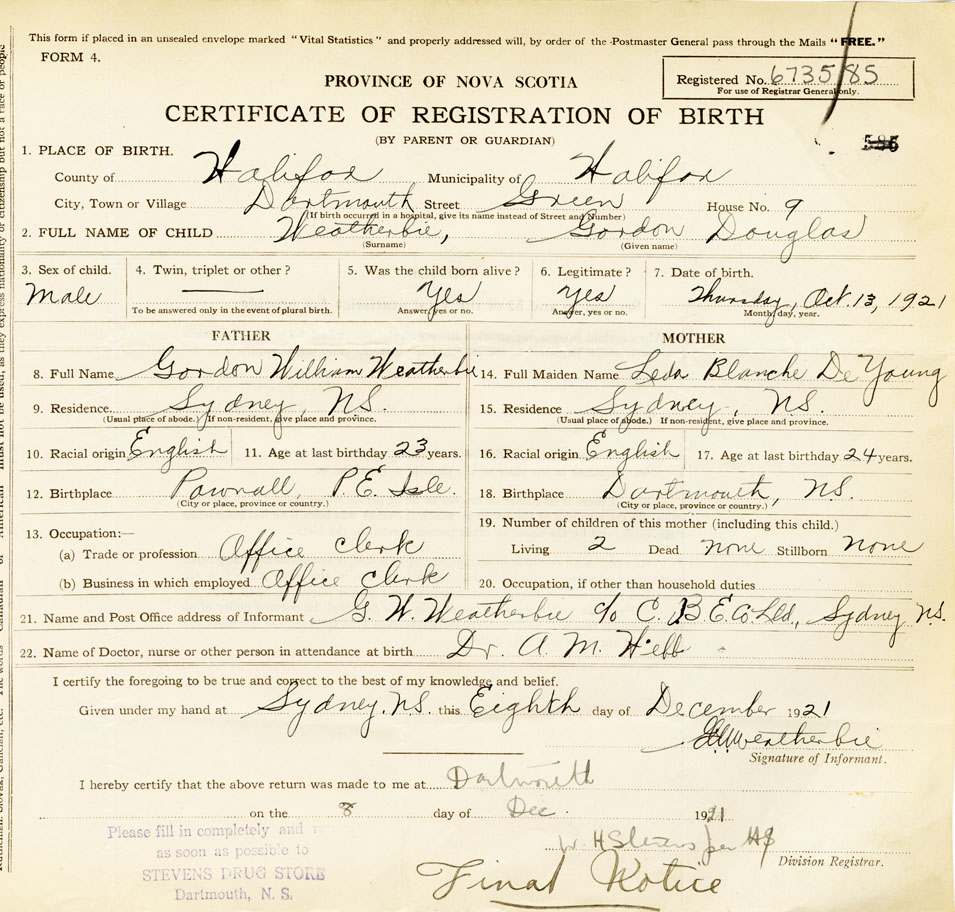 This form if placed in an unsealed envelope marked "Vital Statistics" and properly addressed will, by order of the Postmaster General pass through the Mails "FREE."
FORM 4.
Registered No. 6735/85
For use of Registrar General only.
PROVINCE OF NOVA SCOTIA
CERTIFICATE OF REGISTRATION OF BIRTH
(BY PARENT OR GUARDIAN)
1. PLACE OF BIRTH.
County of Halifax Municipality of Halifax
City, Town or Village Dartmouth Street Green House No. 9
(If birth occurred in a hospital, give its name instead of Street and Number)
2. FULL NAME OF CHILD Weatherbie, Gordon Douglas
(Surname) (Given name)
3. Sex of child. 4. Twin, triplet or other? 5. Was the child born alive? 6. Legitimate? 7. Date of birth.
Male — Yes Yes Thursday, Oct. 13, 1921
To be answered only in the event of plural birth. Answer, yes or no. Answer, yes or no. Month, day, year.
FATHER
8. Full Name Gordon William Weatherbie
9. Residence Sydney, N.S.
(Usual place of abode.) If non-resident, give place and province.
10. Racial origin English 11. Age at last birthday 23 years.
12. Birthplace Pownall, P.E. Isle.
(City or place, province or country.)
13. Occupation:—
(a) Trade or profession Office clerk
(b) Business in which employed Office clerk
MOTHER
14. Full Maiden Name Leda Blanche De Young
15. Residence Sydney, N.S.
(Usual place of abode.) If non-resident, give place and province.
16. Racial origin English 17. Age at last birthday 24 years.
18. Birthplace Dartmouth, N.S.
(City or place, province or country.)
19. Number of children of this mother (including this child.)
Living 2 Dead none Stillborn none
20. Occupation, if other than household duties
21. Name and Post Office address of Informant G. W. Weatherbie c/o C. B. E. Co. Ltd., Sydney N.S.
22. Name of Doctor, nurse or other person in attendance at birth Dr. A. M. Hebb
I certify the foregoing to be true and correct to the best of my knowledge and belief.
Given under my hand at Sydney, N.S. this Eighth day of December 1921
GWWeatherbie
Signature of Informant.
I hereby certify that the above return was made to me at Dartmouth
on the 8 day of Dec. 1921
H Stevens per HS
Division Registrar.
Please fill in completely and
as soon as possible to
STEVENS DRUG STORE
Dartmouth, N. S.
Final Notice